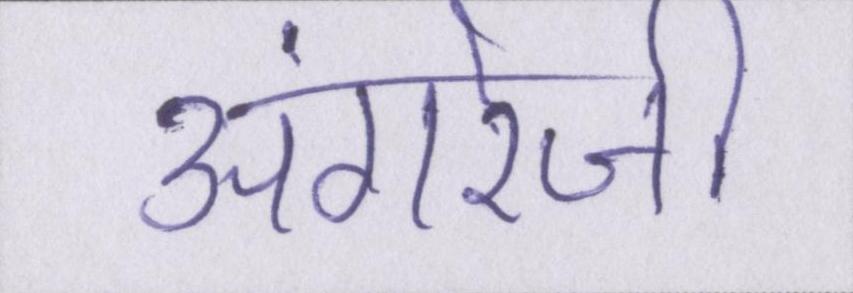 अंगरेजी